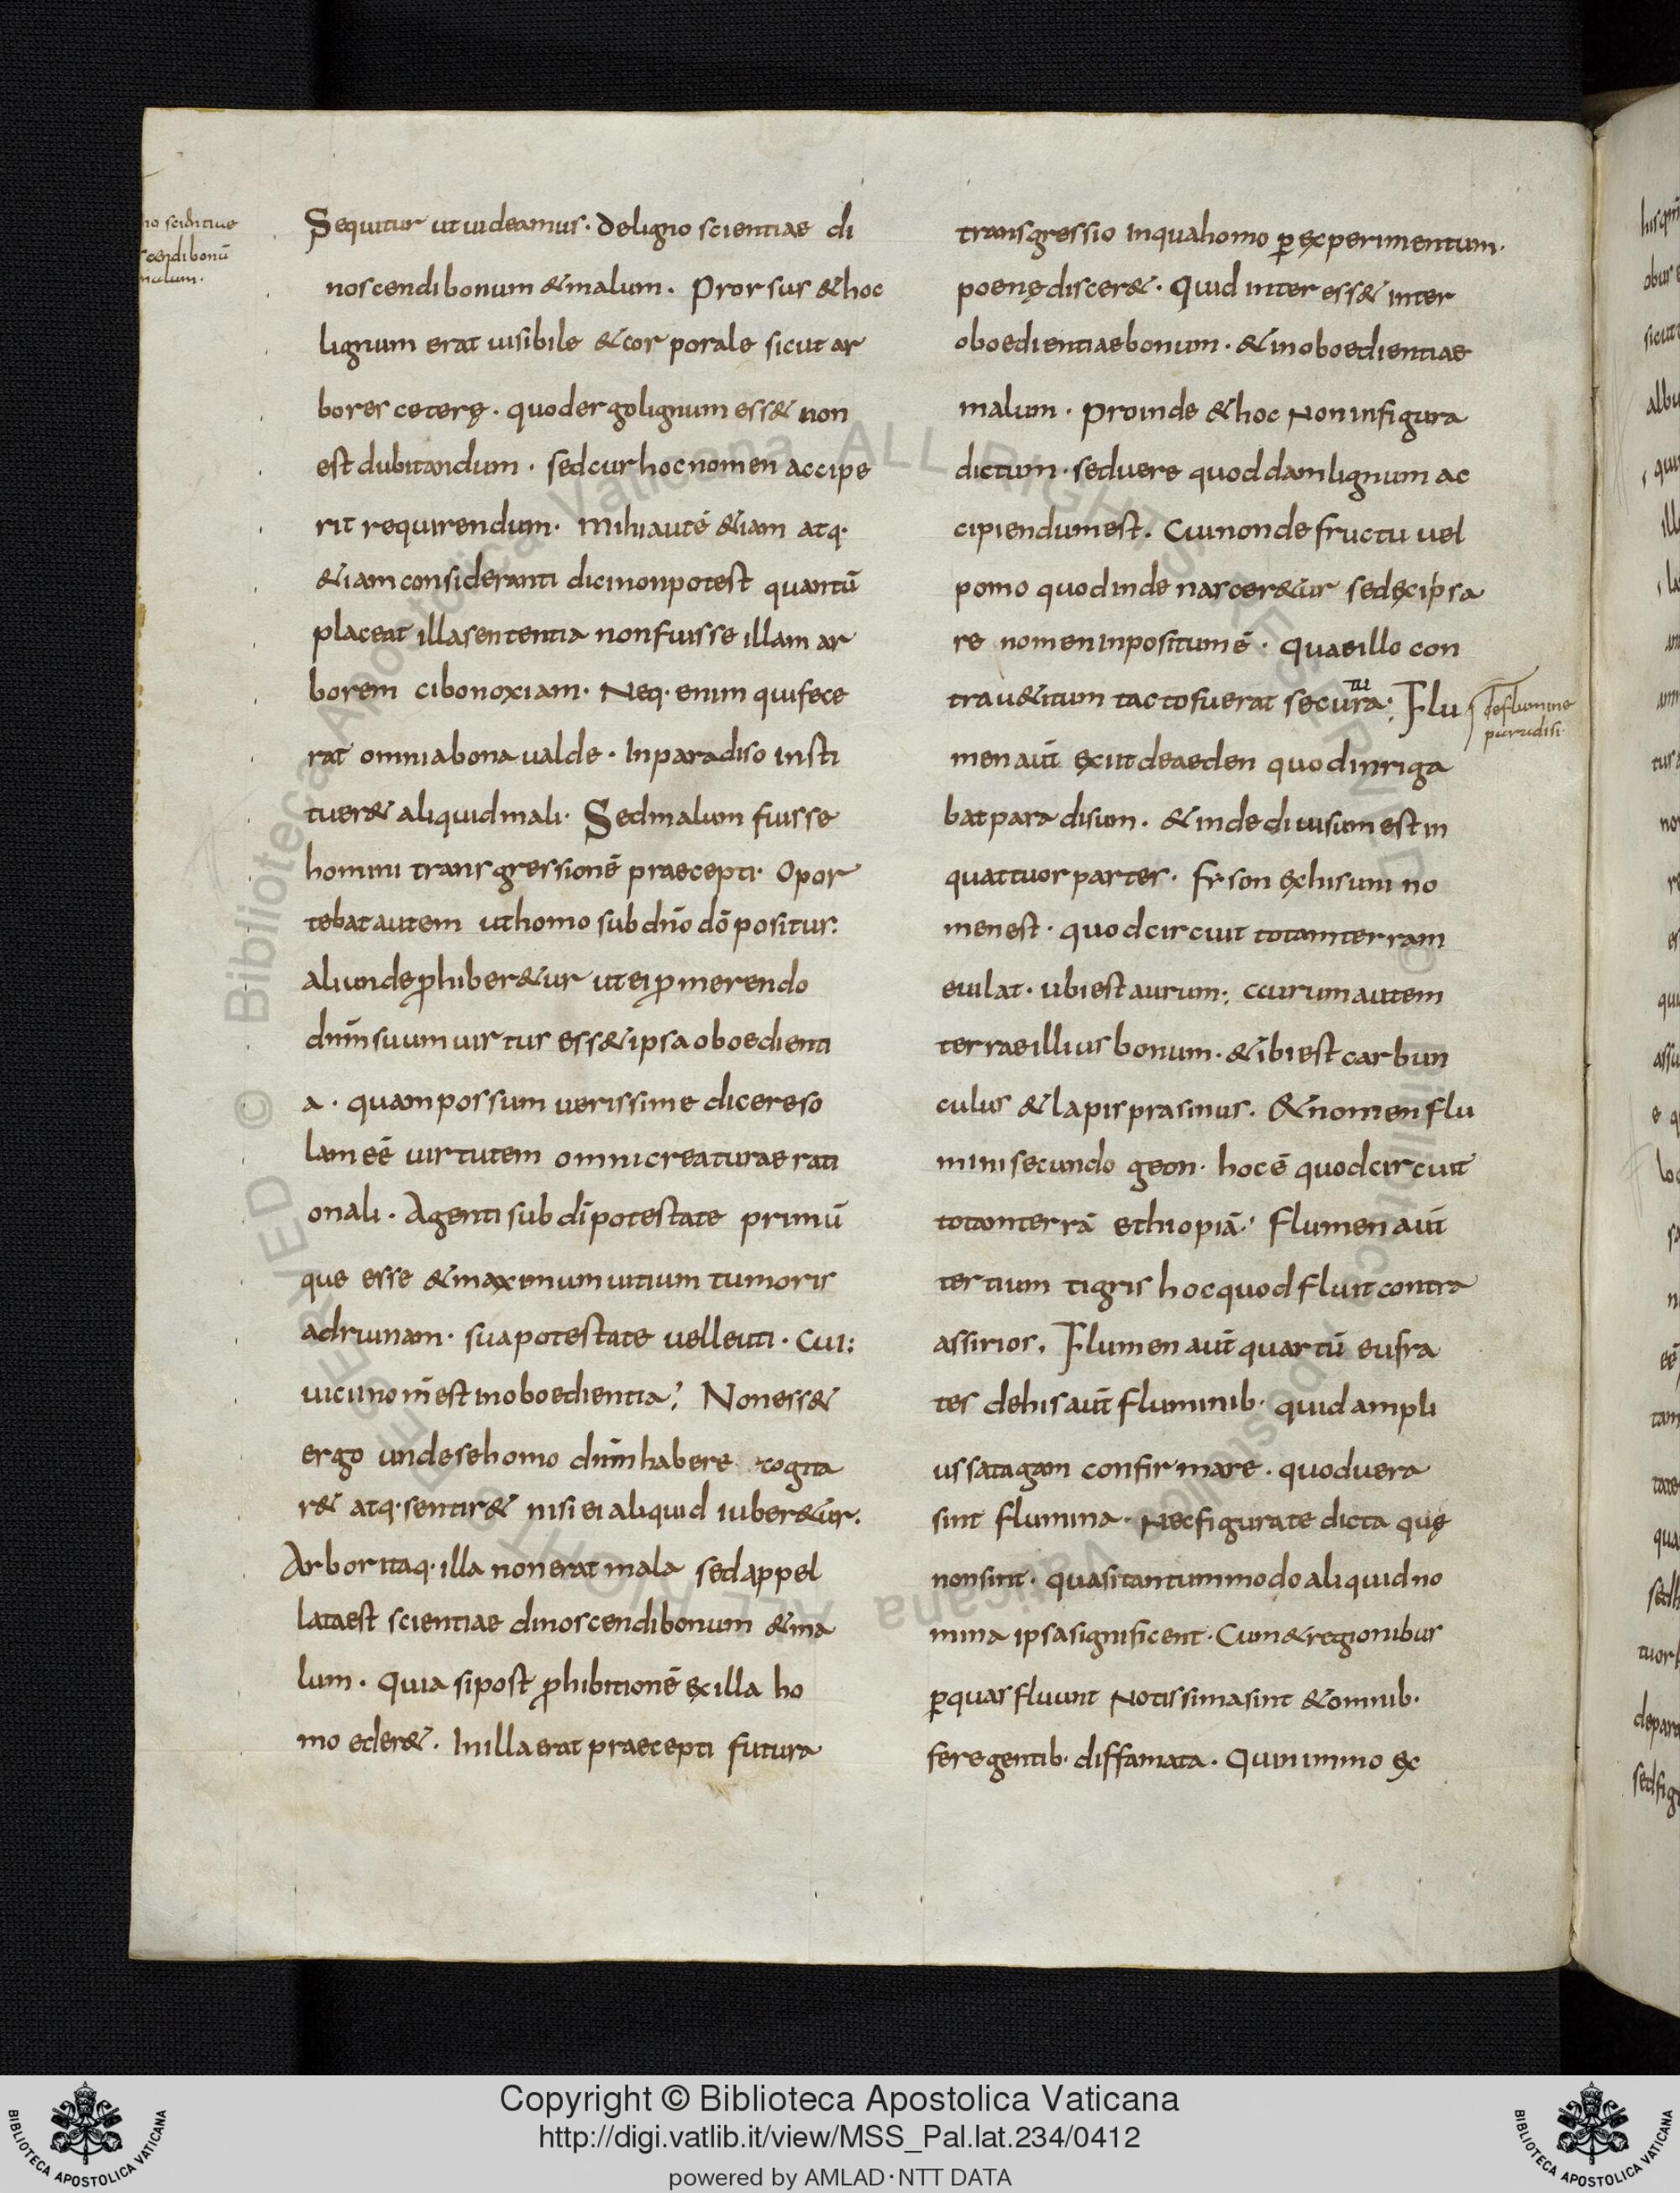 no scientiae
scendi bonū
malum.
Sequitur ut uideamus. de ligno scientiae di
noscendi bonum & malum. Prorsus & hoc
lignum erat uisibile & corporale sicut ar
bores ceterę. quod ergo lignum ess& non
est dubitandum. sed cur hoc nomen accipe
rit requirendum. Mihi autē &iam atq·
&iam consideranti dici non potest quantū
placeat illa sententia non fuisse illam ar
borem cibo noxiam. Neq· enim qui fece
rat omnia bona ualde. In paradiso insti
tuer& aliquid mali. Sed malum fuisse
homini transgressionē praecepti. Opor
tebat autem ut homo sub dn̄o dō positus:
aliunde ꝓhiber&ur ut ei ꝓmerendo
dn̄m suum uirtus ess& ipsa oboedienti
a. quam possum uerissime dicere so
lam eē uirtutem omni creaturae rati
onali. Agenti sub dī potestate primū
que esse & maximum uitium tumoris
ad ruinam. sua potestate uelle uti. Cui:
uicii nom̄ est inoboedientia; Non ess&
ergo unde se homo dn̄m habere cogita
r& atq· sentir& nisi ei aliquid iuber&ur.
Arbor itaq· illa non erat mala sed appel
lata est scientiae dinoscendi bonum & ma
lum. Quia si post ꝓhibitionē ex illa ho
mo eder&. In illa erat praecepti futura
transgressio in qua homo ꝑ experimentum.
poenę discer&. Quid inter ess& inter
oboedientiae bonum. & inoboedientiae
malum. Proinde & hoc Non in figura
dictum. sed uere quoddam lignum ac
cipiendum est. Cui non de fructu uel
pomo quod inde nascer&ur sed ex ipsa
re nomen inpositum ē. Quae illo con
tra u&itum tacto fuerat secutura; Flu
de flumine
paradisi.
men aut̄ exiit de aeden quod inriga
bat paradisum. & inde diuisum est in
quattuor partes. fison ex his uni no
men est. quod circuit totam terram
euilat. ubi est aurum; Aurum autem
terrae illius bonum. & ibi est carbun
culus & lapis prasinus. & nomen flu
mini secundo geon. hoc ē quod circuit
totam terrā ethiopiā; Flumen aut̄
tertium tigris hoc quod fluit contra
assirios. Flumen aut̄ quartū eufra
tes de his aut̄ fluminib· quid ampli
us satagam confirmare. quod uera
sint flumina. Nec figurate dicta quę
non sint. quasi tantummodo aliquid no
mina ipsa significent. Cum & regionibus
ꝑ quas fluunt Notissima sint & omnib·
fere gentib· diffamata. Quin immo ex
Copyright © Biblioteca Apostolica Vaticana
http://digi.vatlib.it/view/MSS_Pal.lat.234/0412
powered by AMLAD·NTT DATA
BIBLIOTECA APOSTOLICA VATICANA
BIBLIOTECA APOSTOLICA VATICANA